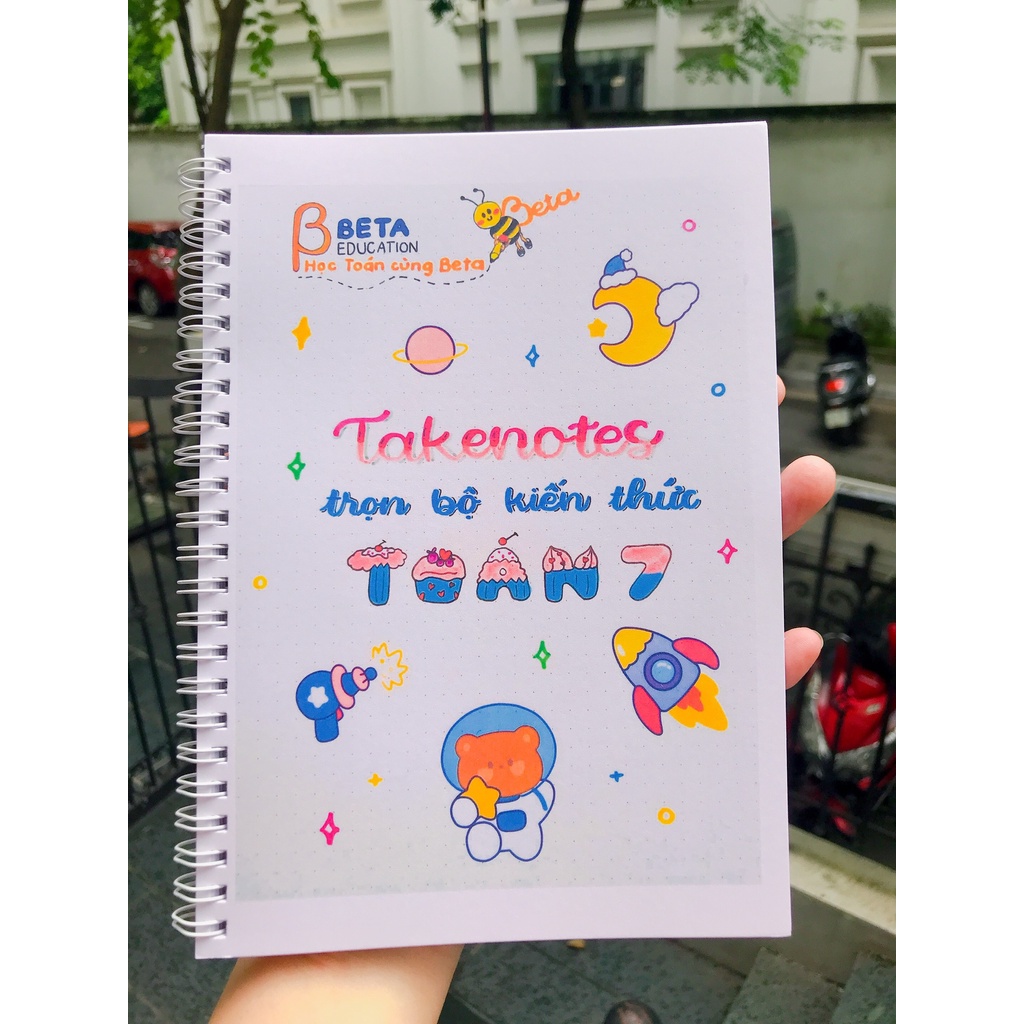 β BETA
EDUCATION
Học Toán cùng Beta
Beta
Takenotes
trọn bộ kiến thức
TOÁN 7